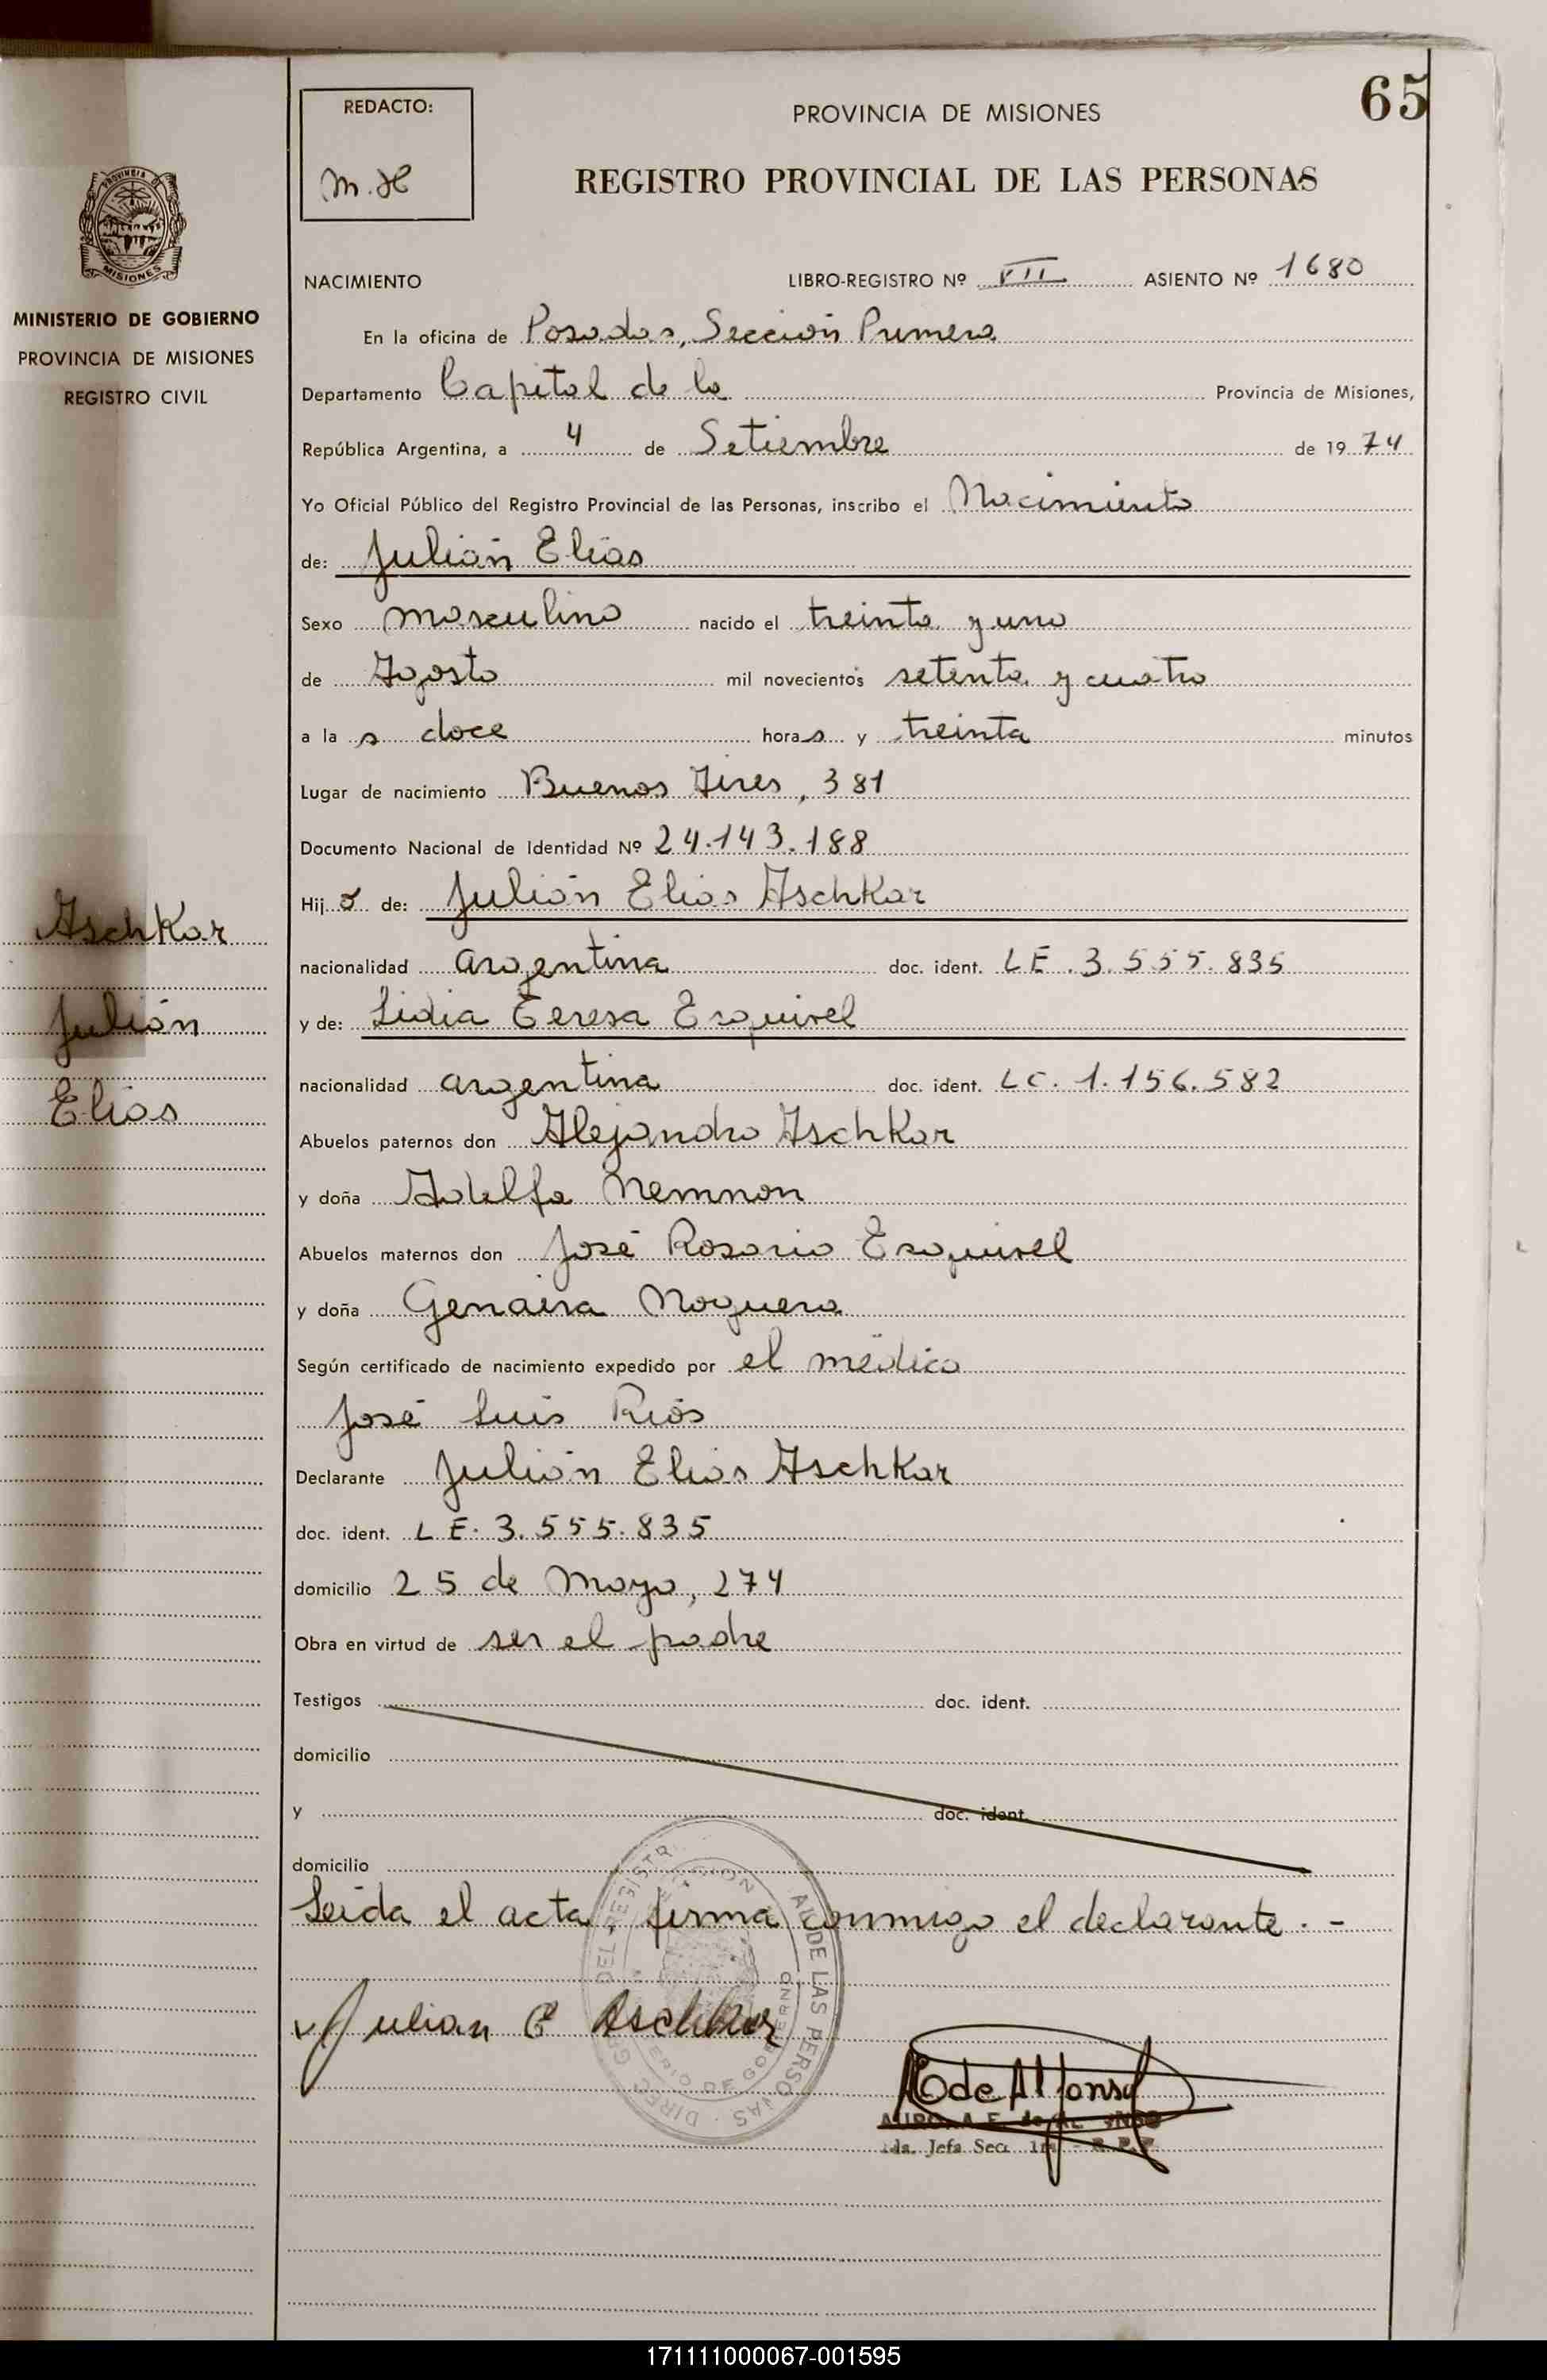 65
REDACTO:
M.H
PROVINCIA DE MISIONES
REGISTRO PROVINCIAL DE LAS PERSONAS
PROVINCIA D
MISIONES
MINISTERIO DE GOBIERNO
PROVINCIA DE MISIONES
REGISTRO CIVIL
NACIMIENTO LIBRO-REGISTRO Nº VII ASIENTO Nº 1680
En la oficina de Posadas, Sección Primera
Departamento Capital de la Provincia de Misiones,
República Argentina, a 4 de Setiembre de 1974
Yo Oficial Público del Registro Provincial de las Personas, inscribo el Nacimiento
de: Julián Elías
Sexo masculino nacido el treinta y uno
de Agosto mil novecientos setenta y cuatro
a la s doce horas y treinta minutos
Lugar de nacimiento Buenos Aires, 381
Documento Nacional de Identidad Nº 24.143.188
Hijo de: Julián Elías Aschkar
nacionalidad argentina doc. ident. LE.3.555.835
y de: Lidia Teresa Esquivel
nacionalidad argentina doc. ident. LC.1.156.582
Abuelos paternos don Alejandro Aschkar
y doña Adelfa Nemnon
Abuelos maternos don José Rosario Esquivel
y doña Genaira Noguera
Según certificado de nacimiento expedido por el médico
José Luis Ríos
Declarante Julián Elías Aschkar
doc. ident. LE.3.555.835
domicilio 25 de Mayo, 274
Obra en virtud de ser el padre
Testigos doc. ident.
domicilio
y doc. ident.
domicilio
Leída el acta, firma conmigo el declarante.-
Julian E Aschkar
E de Alfonso
Jefa Secc. 1ra - R.P.P
Aschkar
Julián
Elías
171111000067-001595